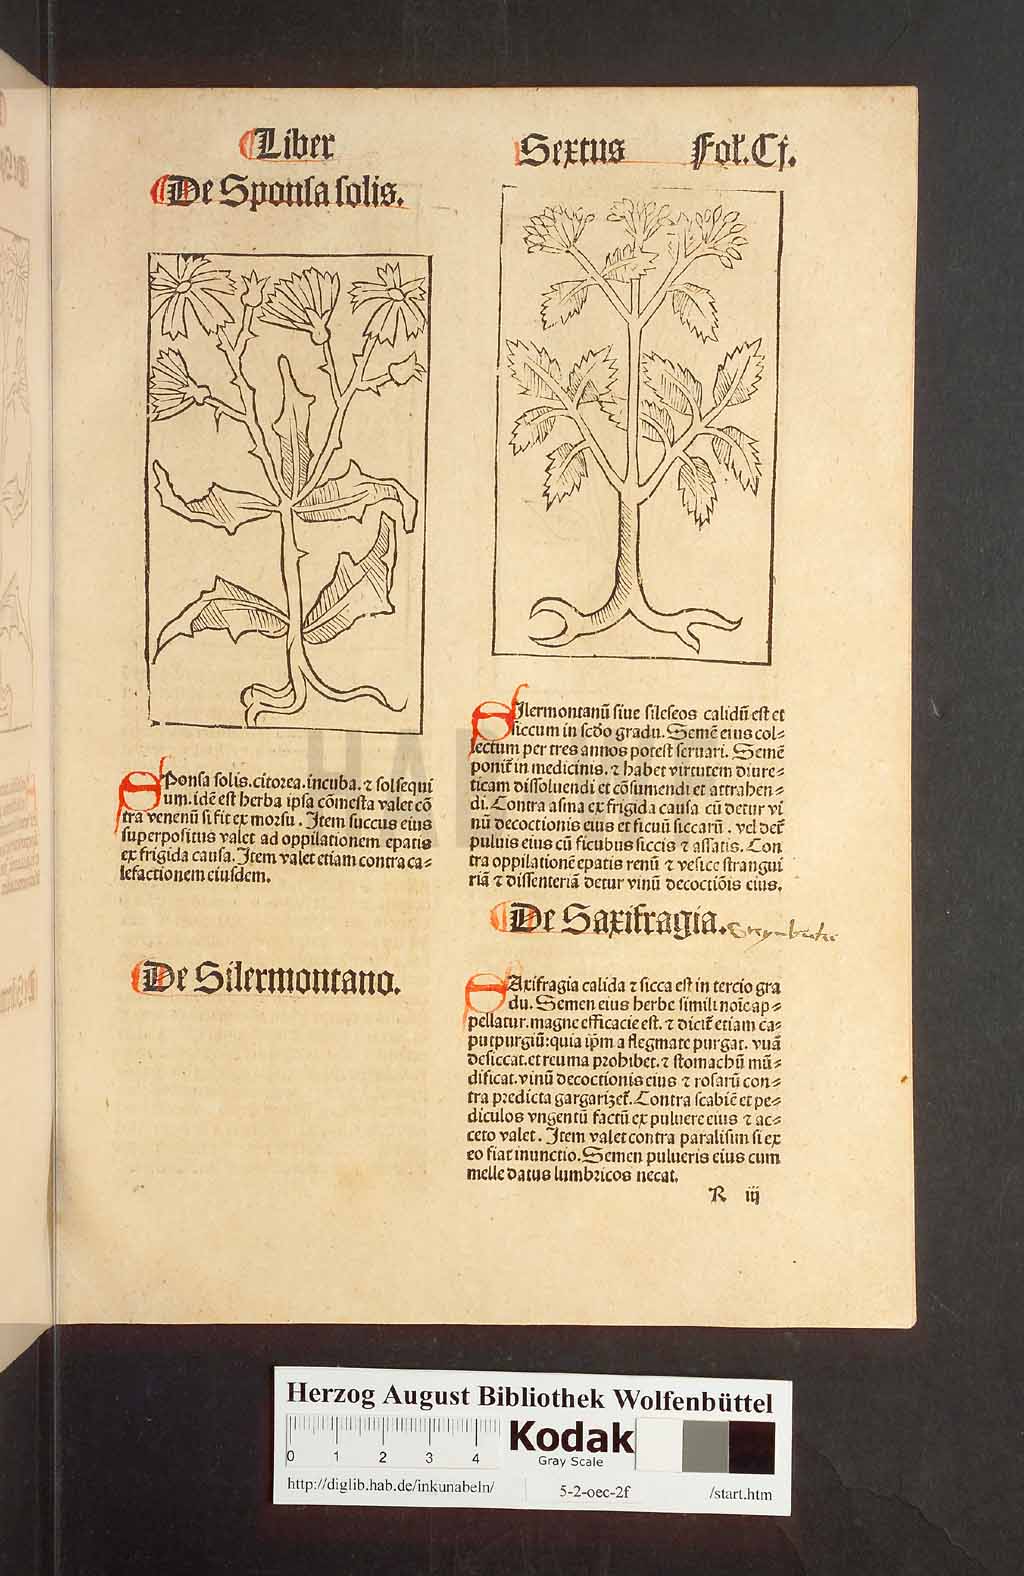 Liber Sextus Fol̃. Cj.
De Sponsa solis.
SPonsa solis. citorea. incuba. ⁊ solsequi
um. idē est herba ipsa cōmesta valet cō
tra venenū si fit ex morsu. Item succus eius
superpositus valet ad oppilationem epatis
ex frigida causa. Item valet etiam contra ca⸗
lefactionem eiusdem.
De Silermontano.
SIlermontanū siue sileseos calidū est et
siccum in scďo gradu. Semē eius col⸗
lectum per tres annos potest seruari. Semē
ponit̃ in medicinis. ⁊ habet virtutem diure⸗
ticam dissoluendi et cōsumendi et attrahen⸗
di. Contra asma ex frigida causa cū detur vi
nū decoctionis eius et ficuū siccarū. vel det̃
puluis eius cū ficubus siccis ⁊ assatis. Con
tra oppilationē epatis renū ⁊ vesice strangui
riā ⁊ dissenteriā detur vinū decoctiōis eius.
De Saxifragia.
SAxifragia calida ⁊ sicca est in tercio gra
du. Semen eius herbe simili noīe ap⸗
pellatur. magne efficacie est. ⁊ dicit̃ etiam ca⸗
putpurgiū: quia ip̄m a flegmate purgat. vuā
desiccat. et reuma prohibet. ⁊ stomachū mū⸗
dificat. vinū decoctionis eius ⁊ rosarū con⸗
tra predicta gargarizet̃. Contra scabiē et pe⸗
diculos vngentū factū ex puluere eius ⁊ ac⸗
ceto valet. Item valet contra paralisim si ex
eo fiat inunctio. Semen pulueris eius cum
melle datus lumbricos necat.
R iij
Herzog August Bibliothek Wolfenbüttel
0 1 2 3 4
Kodak
Gray Scale
http://diglib.hab.de/inkunabeln/ 5-2-oec-2f /start.htm